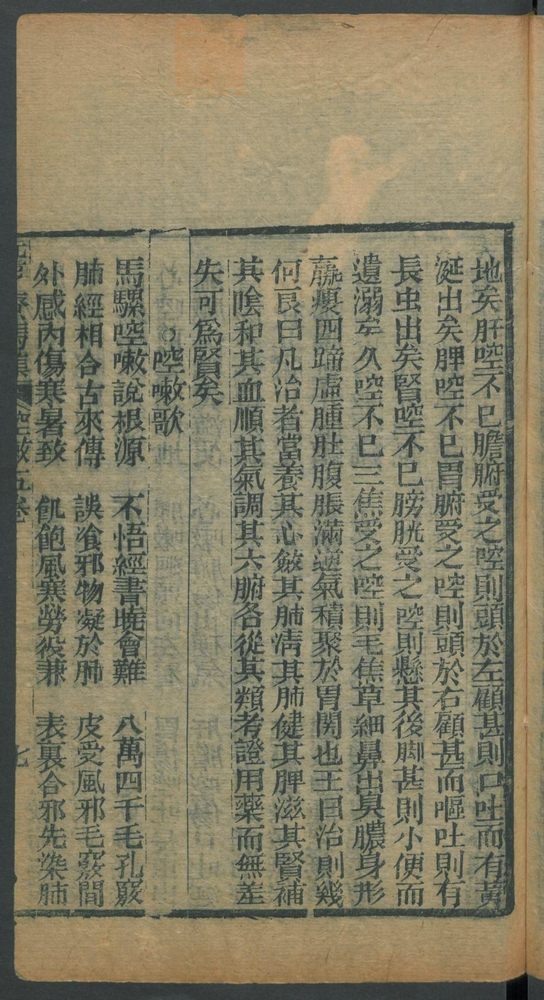 地矣肝啌不已膽腑受之啌則頭於左顧甚則口吐而有黃
涎出矣脾啌不已胃腑受之啌則頭於右顧甚而嘔吐則有
長虫出矣腎啌不已膀胱受之啌則懸其後脚甚則小便而
遺溺矣久啌不已三焦受之啌則毛焦草細鼻出臭膿身形
羸瘦四蹄虛腫肚腹脹滿逆氣積聚於胃関也王曰治則幾
何良曰凡治者當養其心斂其肺淸其肺健其脾滋其腎補
其陰和其血順其氣調其六腑各從其類考證用藥而無差
失可爲賢矣
○啌嗽歌
馬騾啌嗽說根源 不悟經書曉會難 八萬四千毛孔竅
肺經相合古來傳 誤飡邪物凝於肺 皮受風邪毛竅間
外感內傷寒暑致 飢飽風寒勞役兼 表裏合邪先染肺
啌嗽五卷 七